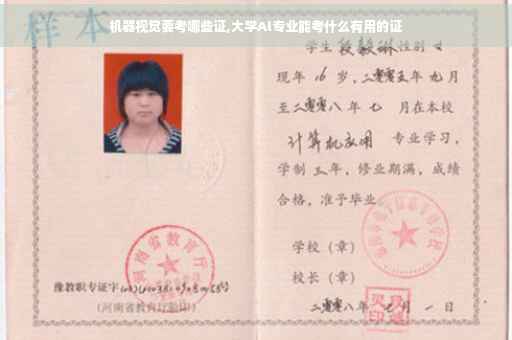 机器视觉要考哪些证,大学AI专业能考什么有用的证
样本
学生段毅琳性别女
现年16岁,二零零五年九月
至二零零八年七月在本校
计算机应用专业学习,
学制三年,修业期满,成绩
合格,准予毕业。
学校(章)
校长(章)
二零零八年七月一日
河南省教育厅
豫教职专证字
(河南省教育厅验印)